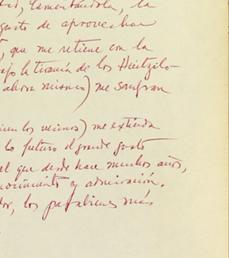 lamentándola, la
gusto de aprovechar
que me retiene con la
bajo la tiranía de los Huitzilo-
ahora mismo) me sangran
los vecinos) me extienda
lo futuro el grande gusto
el que desde hace muchos años,
y admiración.
los parabienes más